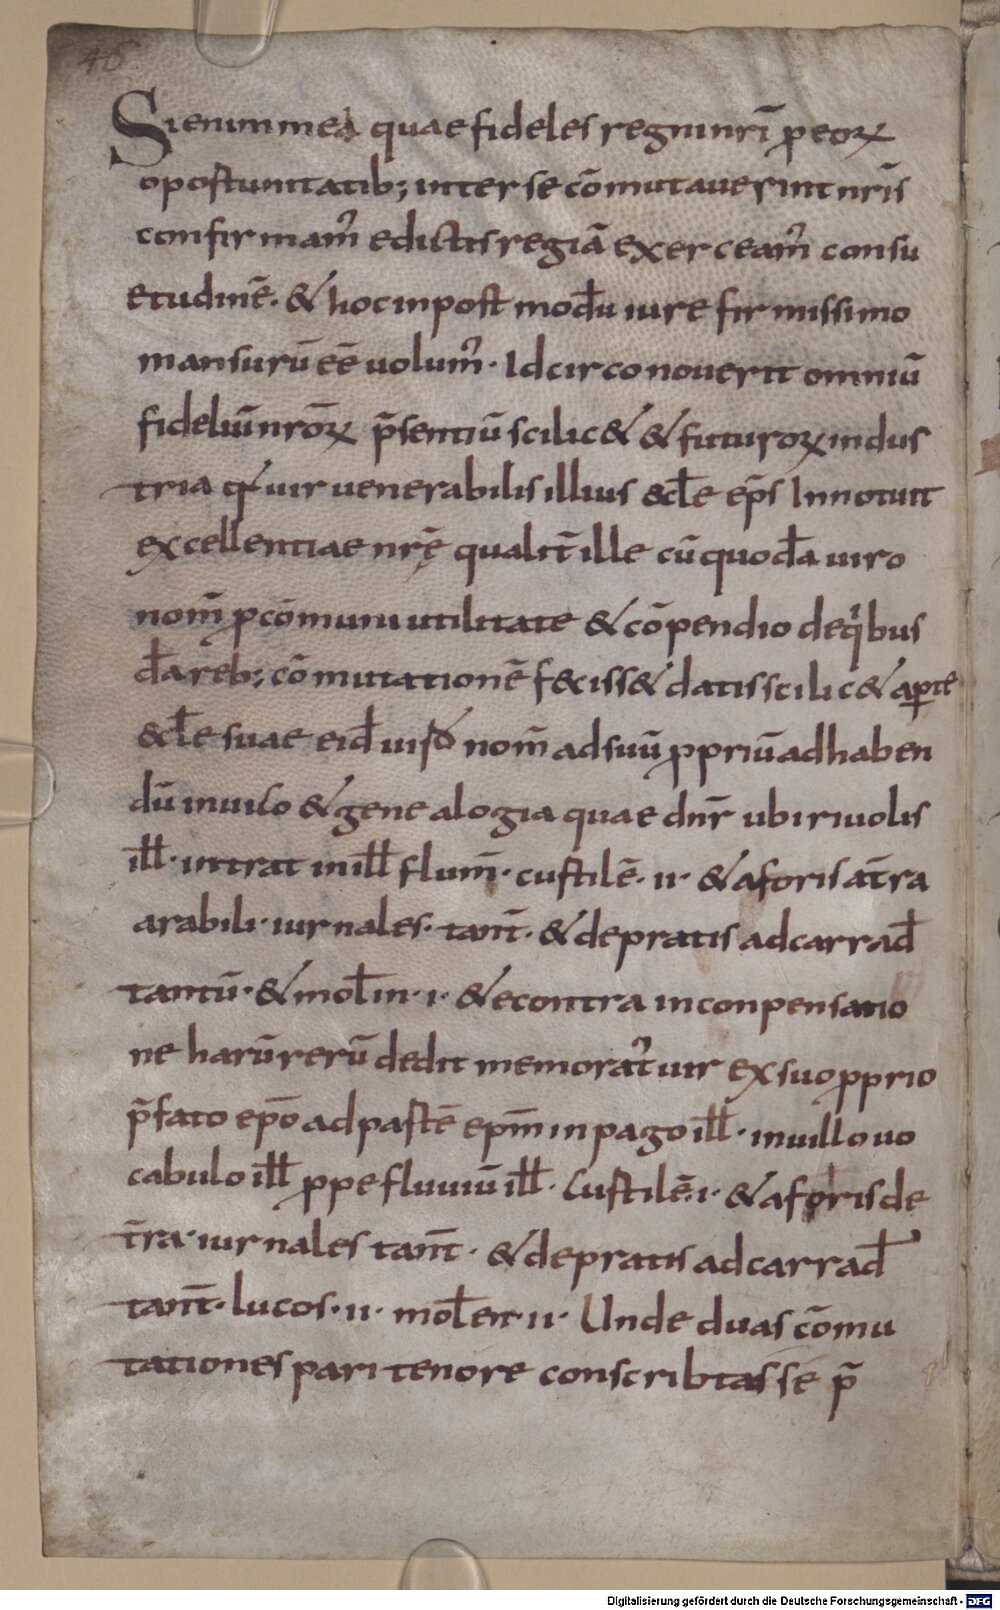 46
Si enim mea quae fideles regni nrī p eoꝝ
opoſtunitatib; inter se cōmutaverint nrīs
confirmam̉ edictis regiā exerceam̉ consu
etudinē· & hoc inpost mod̄u iure firmissimo
mansurū eē̄ volum̉· Idcirco noverit omniū
fideliū nrōꝝ p̄sentiū scilic& & futuroꝝ indus
tria qđ vir venerabilis illius &cl̄e ep̄s Innotuit
excellentiae nr̄ę qualit̄ ille cū quod̄a viro
nom̄ ꝓ cōmuni utilitate & cōpendio deqͥbus
d̄a reb; cōmutationē f&iss& datis scilic& aꝑte
&cl̄e suae eid̄ viro nom̄ ad suū ꝓpriū ad haben
dū in vico & genealogia quae dn̄r ubi rivolis
ill̄· intrat in ill̄ flum̄· custilē· ii· & a foris a t̄ra
arabili· iurnales· tant̄· & de pratis ad carrad̄
tantū· & mol̄in· i· & econtra in conpensatio
ne harū rerū dedit memorat̉ vir ex suo ꝓprio
p̄fato ep̄o ad paſtē ep̄m in pago ill̄· in villo vo
cabulo ill̄ ꝓpe fluviū ill̄· Custilē· i· & a foris de
t̄ra· iurnales tant̄· & de pratis ad carrad̄
tant̄· lucos· ii· mol̄en ii· Unde duas cōmu
tationes pari tenore conscribtas se p̄
Digitalisierung gefördert durch die Deutsche Forschungsgemeinschaft - DFG